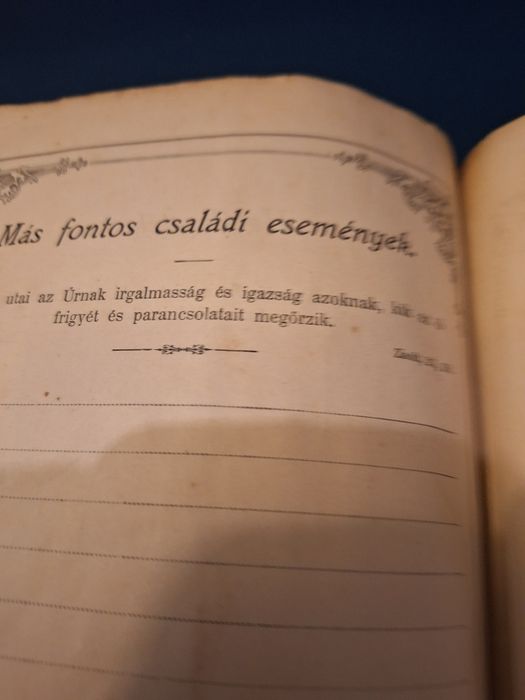 Más fontos családi események.
utai az Úrnak irgalmasság és igazság azoknak, kik az ő
frigyét és parancsolatait megőrzik.